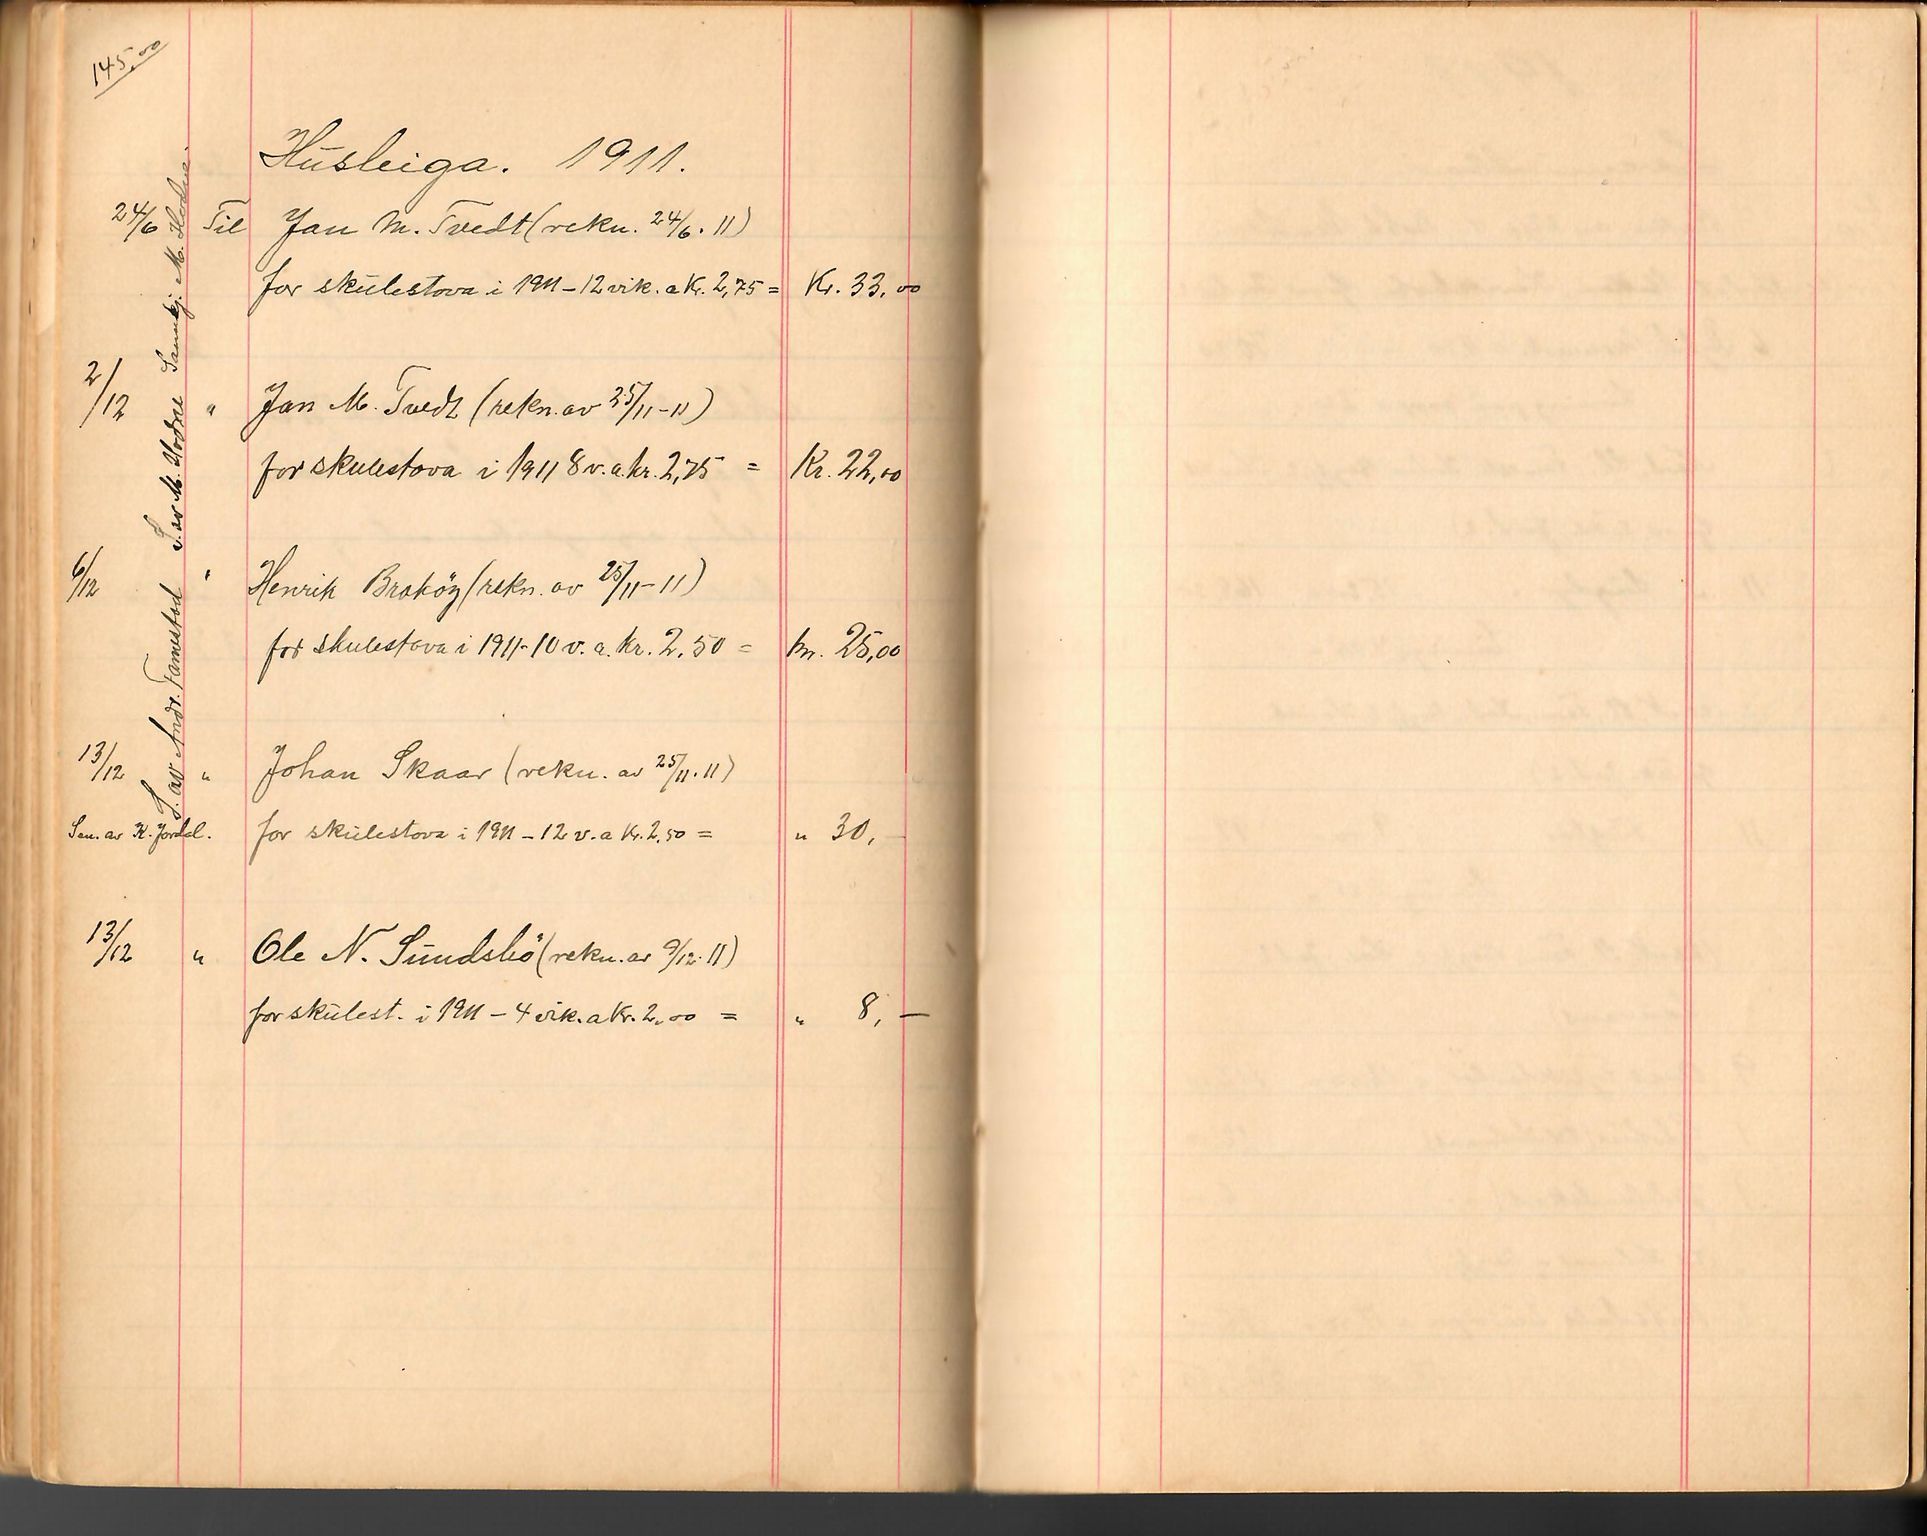 145,00
Husleiga. 1911.
24/6 Til Jan M. Tvedt (rekn. 24/6. 11)
for skulestova i 1911 – 12 vik. a Kr. 2,75 = Kr. 33,00
2/12 " Jan M. Tvedt (rekn. av 25/11 – 11)
for skulestova i 1911 8 v. a. kr. 2,75 = Kr. 22,00
6/12 " Henrik (rekn. av 25/11 – 11)
for skulestova i 1911 - 10 v. a. kr. 2,50 = kr. 25,00
13/12 " Johan Skaar (rekn. av 25/11. 11)
Sen. av K. for skulestova i 1911 – 12 v. a Kr. 2,50 = " 30, –
13/12 " Ole N. Sundsbö (rekn. av 9/12. 11)
for skulest. i 1911 – 4 vik. a Kr. 2,00 = " 8, –
S. av Andr. Tamestod S. av M. Hodne M. Hodne.